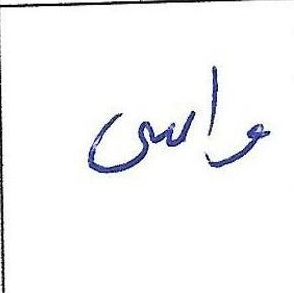 واسى